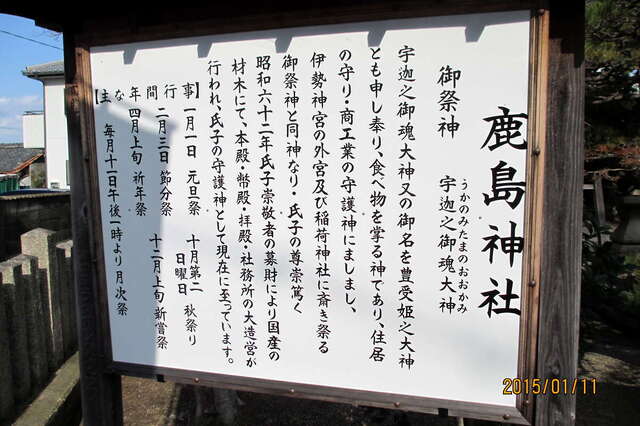 鹿島神社
御祭神　宇迦之御魂大神
うかのみたまのおおかみ
宇迦之御魂大神又の御名を豊受姫之大神
とも申し奉り、食べ物を掌る神であり、住居
の守り・商工業の守護神にましまし、
伊勢神宮の外宮及び稲荷神社に斎き祭る
御祭神と同神なり・氏子の尊崇篤く
昭和六十二年氏子崇敬者の募財により国産の
材木にて、本殿・幣殿・拝殿・社務所の大造営が
行われ、氏子の守護神として現在に至っています。
【主な年間行事】
一月一日　元旦祭　十月第二日曜日　秋祭り
二月三日　節分祭　十二月上旬　新嘗祭
四月上旬　祈年祭
毎月十一日午後一時より　月次祭
2015/01/11